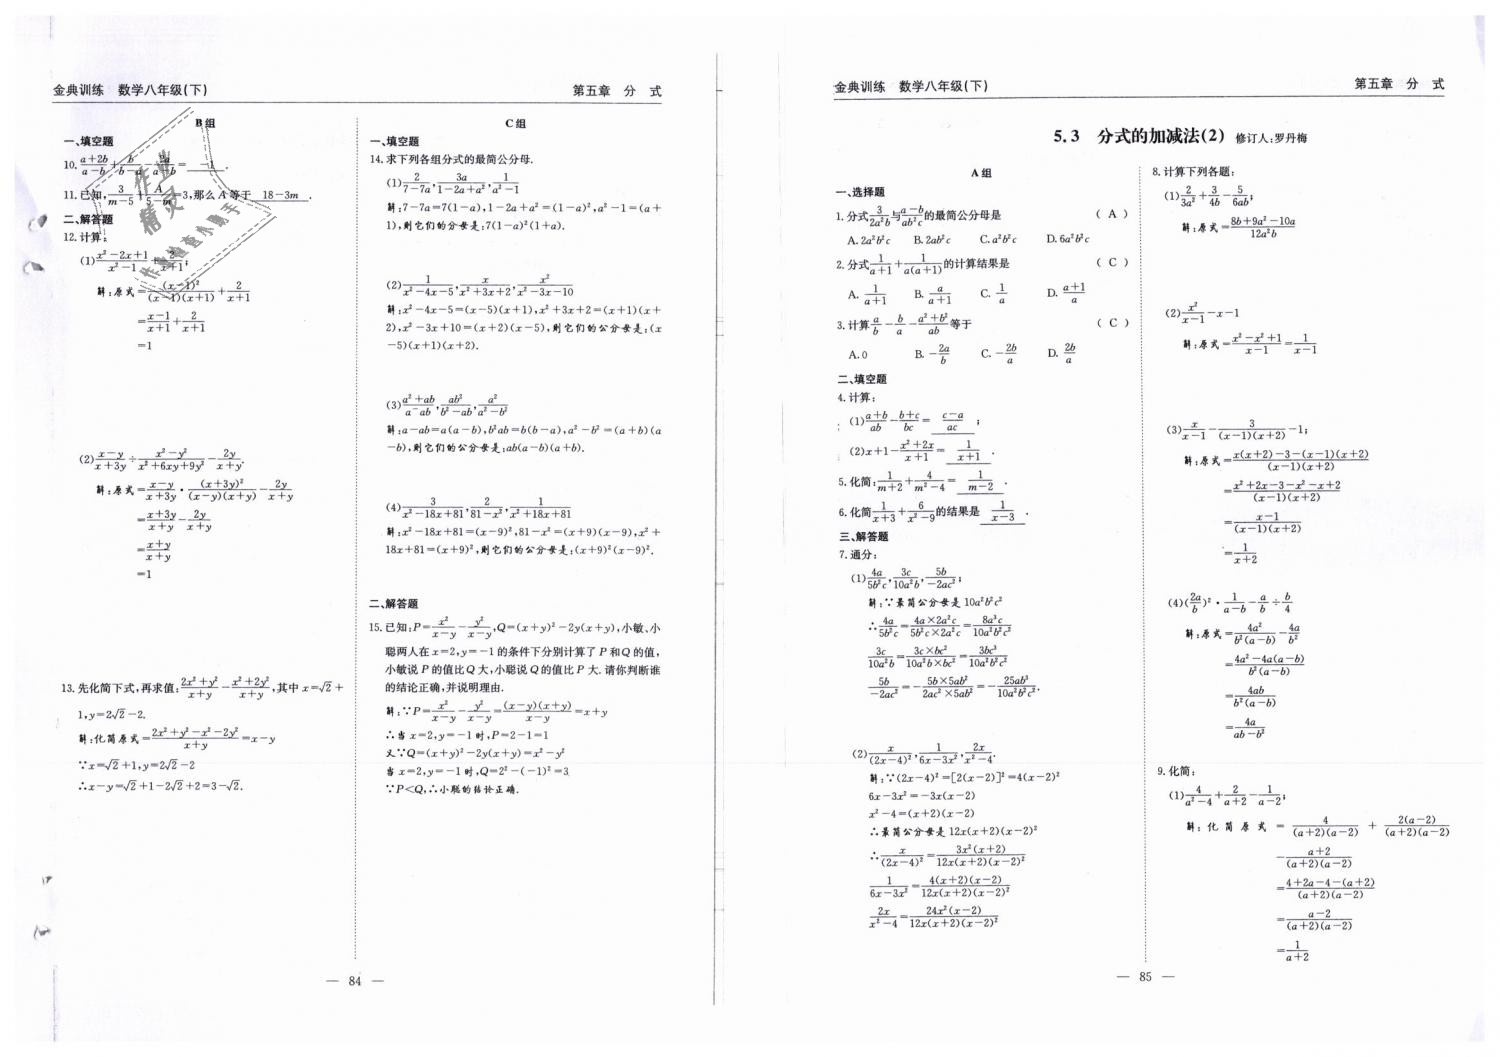 金典训练 数学八年级(下) 第五章 分 式
B组
一、填空题
10. (a+2b)/(a-b) + b/(b-a) - 2a/(a-b) = -1 .
11.已知,3/(m-5)+A/(5-m)=3,那么A等于 18-3m .
二、解答题
12.计算:
(1)(x²-2x+1)/(x²-1)+2/(x+1);
解:原式=(x-1)²/((x-1)(x+1))+2/(x+1)
=(x-1)/(x+1)+2/(x+1)
=1
(2)(x-y)/(x+3y)÷(x²-y²)/(x²+6xy+9y²)-2y/(x+y).
解:原式=(x-y)/(x+3y)·(x+3y)²/((x-y)(x+y))-2y/(x+y)
=(x+3y)/(x+y)-2y/(x+y)
=(x+y)/(x+y)
=1
13.先化简下式,再求值:(2x²+y²)/(x+y)-(x²+2y²)/(x+y),其中x=√2+
1,y=2√2-2.
解:化简原式=(2x²+y²-x²-2y²)/(x+y)=x-y
∵x=√2+1,y=2√2-2
∴x-y=√2+1-2√2+2=3-√2.
C组
一、填空题
14.求下列各组分式的最简公分母.
(1)2/(7-7a),3a/(1-2a+a²),1/(a²-1)
解:7-7a=7(1-a),1-2a+a²=(1-a)²,a²-1=(a+
1),则它们的分母是:7(1-a)²(1+a).
(2)1/(x²-4x-5),x/(x²+3x+2),x²/(x²-3x-10)
解:x²-4x-5=(x-5)(x+1),x²+3x+2=(x+1)(x+
2),x²-3x+10=(x+2)(x-5),则它们的公分母是:(x
-5)(x+1)(x+2).
(3)(a²+ab)/(a-ab),ab²/(b²-ab),a²/(a²-b²)
解:a-ab=a(a-b),b²ab=b(b-a),a²-b²=(a+b)(a
-b),则它们的公分母是:ab(a-b)(a+b).
(4)3/(x²-18x+81),2/(81-x²),1/(x²+18x+81)
解:x²-18x+81=(x-9)²,81-x²=(x+9)(x-9),x²+
18x+81=(x+9)²,则它们的公分母是:(x+9)²(x-9)².
二、解答题
15.已知:P=x²/(x-y)-y²/(x-y),Q=(x+y)²-2y(x+y),小敏、小
聪两人在x=2,y=-1的条件下分别计算了P和Q的值,
小敏说P的值比Q大,小聪说Q的值比P大.请你判断谁
的结论正确,并说明理由.
解:∵P=x²/(x-y)-y²/(x-y)=(x-y)(x+y)/(x-y)=x+y
∴当x=2,y=-1时,P=2-1=1
又∵Q=(x+y)²-2y(x+y)=x²-y²
当x=2,y=-1时,Q=2²-(-1)²=3
∵P<Q,∴小聪的结论正确.
— 84 —
金典训练 数学八年级(下) 第五章 分 式
5.3 分式的加减法(2) 修订人:罗丹梅
A组
一、选择题
1.分式3/(2a²b)与(a-b)/(ab²c)的最简公分母是 ( A )
A.2a²b²c B.2ab²c C.a²b²c D.6a²b²c
2.分式1/(a+1)+1/(a(a+1))的计算结果是 ( C )
A.1/(a+1) B.a/(a+1) C.1/a D.(a+1)/a
3.计算a/b-b/a-(a²+b²)/ab等于 ( C )
A.0 B.-2a/b C.-2b/a D.2b/a
二、填空题
4.计算:
(1)(a+b)/ab-(b+c)/bc= (c-a)/ac ;
(2)x+1-(x²+2x)/(x+1)= 1/(x+1) .
5.化简:1/(m+2)+4/(m²-4)= 1/(m-2) .
6.化简1/(x+3)+6/(x²-9)的结果是 1/(x-3) .
三、解答题
7.通分:
(1)4a/(5b²c),3c/(10a²b),5b/(-2ac²);
解:∵最简公分母是10a²b²c²
∴4a/(5b²c)=(4a×2a²c)/(5b²c×2a²c)=8a³c/(10a²b²c²)
3c/(10a²b)=(3c×bc²)/(10a²b×bc²)=3bc³/(10a²b²c²)
5b/(-2ac²)=-(5b×5ab²)/(2ac²×5ab²)=-25ab³/(10a²b²c²).
(2)x/(2x-4)²,1/(6x-3x²),2x/(x²-4).
解:∵(2x-4)²=[2(x-2)]²=4(x-2)²
6x-3x²=-3x(x-2)
x²-4=(x+2)(x-2)
∴最简公分母是12x(x+2)(x-2)²
∴x/(2x-4)²=3x²(x+2)/(12x(x+2)(x-2)²)
1/(6x-3x²)=4(x+2)(x-2)/(12x(x+2)(x-2)²)
2x/(x²-4)=24x²(x-2)/(12x(x+2)(x-2)²)
8.计算下列各题:
(1)2/(3a²)+3/(4b)-5/(6ab);
解:原式=(8b+9a²-10a)/(12a²b)
(2)x²/(x-1)-x-1
解:原式=(x²-x²+1)/(x-1)=1/(x-1)
(3)x/(x-1)-3/((x-1)(x+2))-1;
解:原式=(x(x+2)-3-(x-1)(x+2))/((x-1)(x+2))
=(x²+2x-3-x²-x+2)/((x-1)(x+2))
=(x-1)/((x-1)(x+2))
=1/(x+2)
(4)(2a/b)²·1/(a-b)-a/b÷b/4
解:原式=4a²/(b²(a-b))-4a/b²
=(4a²-4a(a-b))/(b²(a-b))
=4ab/(b²(a-b))
=4a/(ab-b²)
9.化简:
(1)4/(a²-4)+2/(a+2)-1/(a-2);
解:化简原式=4/((a+2)(a-2))+2(a-2)/((a+2)(a-2))
-(a+2)/((a+2)(a-2))
=(4+2a-4-(a+2))/((a+2)(a-2))
=(a-2)/((a+2)(a-2))
=1/(a+2)
— 85 —
作业
精灵
作业检查小助手